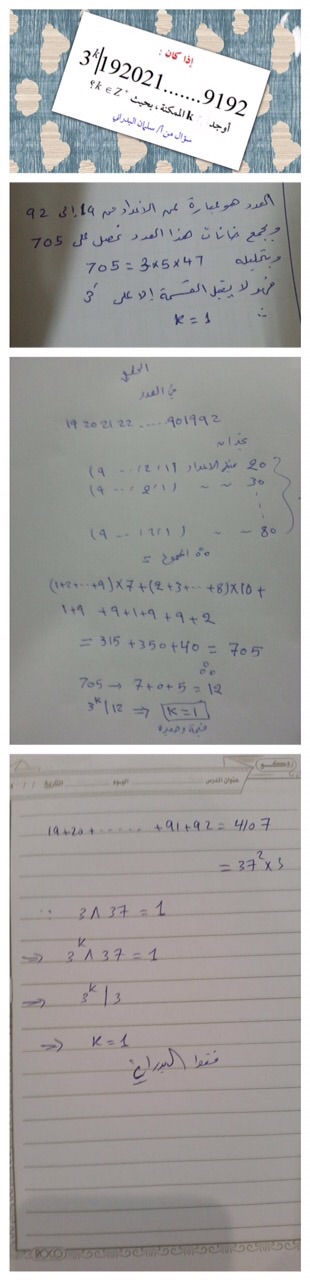 إذا كان :
3^k|192021.......9192
أوجد k الممكنة ، بحيث k ∈ Z⁺ ؟
سؤال من أ/ سلمان البدراني
العدد هو عبارة عن الاعداد من 19 إلى 92
وبجمع خانات هذا العدد نحصل على 705
وبتحليله 705 = 3×5×47
فهو لا يقبل القسمة إلا على 3¹
k = 1
الحل
في العدد
19 20 21 22 ..... 901992
20 (1, 2, ... 9)
30 ~ ~ (1, 2, ... 9)
80 ~ ~ (1, 2, ... 9)
∴ المجموع =
(1+2+...+9)×7+(2+3+...+8)×10+
1+9 +9+1+9 +9+2
= 315 +350+40 = 705
705 → 7+0+5 = 12
3^k/12 ⇒ k=1
قيمة وحيدة
عنوان الدرس اليوم التاريخ / /
19+20+ ...... +91+92 = 4107
= 37²×3
∵ 3 ∧ 37 = 1
⇒ 3^k ∧ 37 = 1
⇒ 3^k / 3
⇒ k = 1
فقط
ROCO